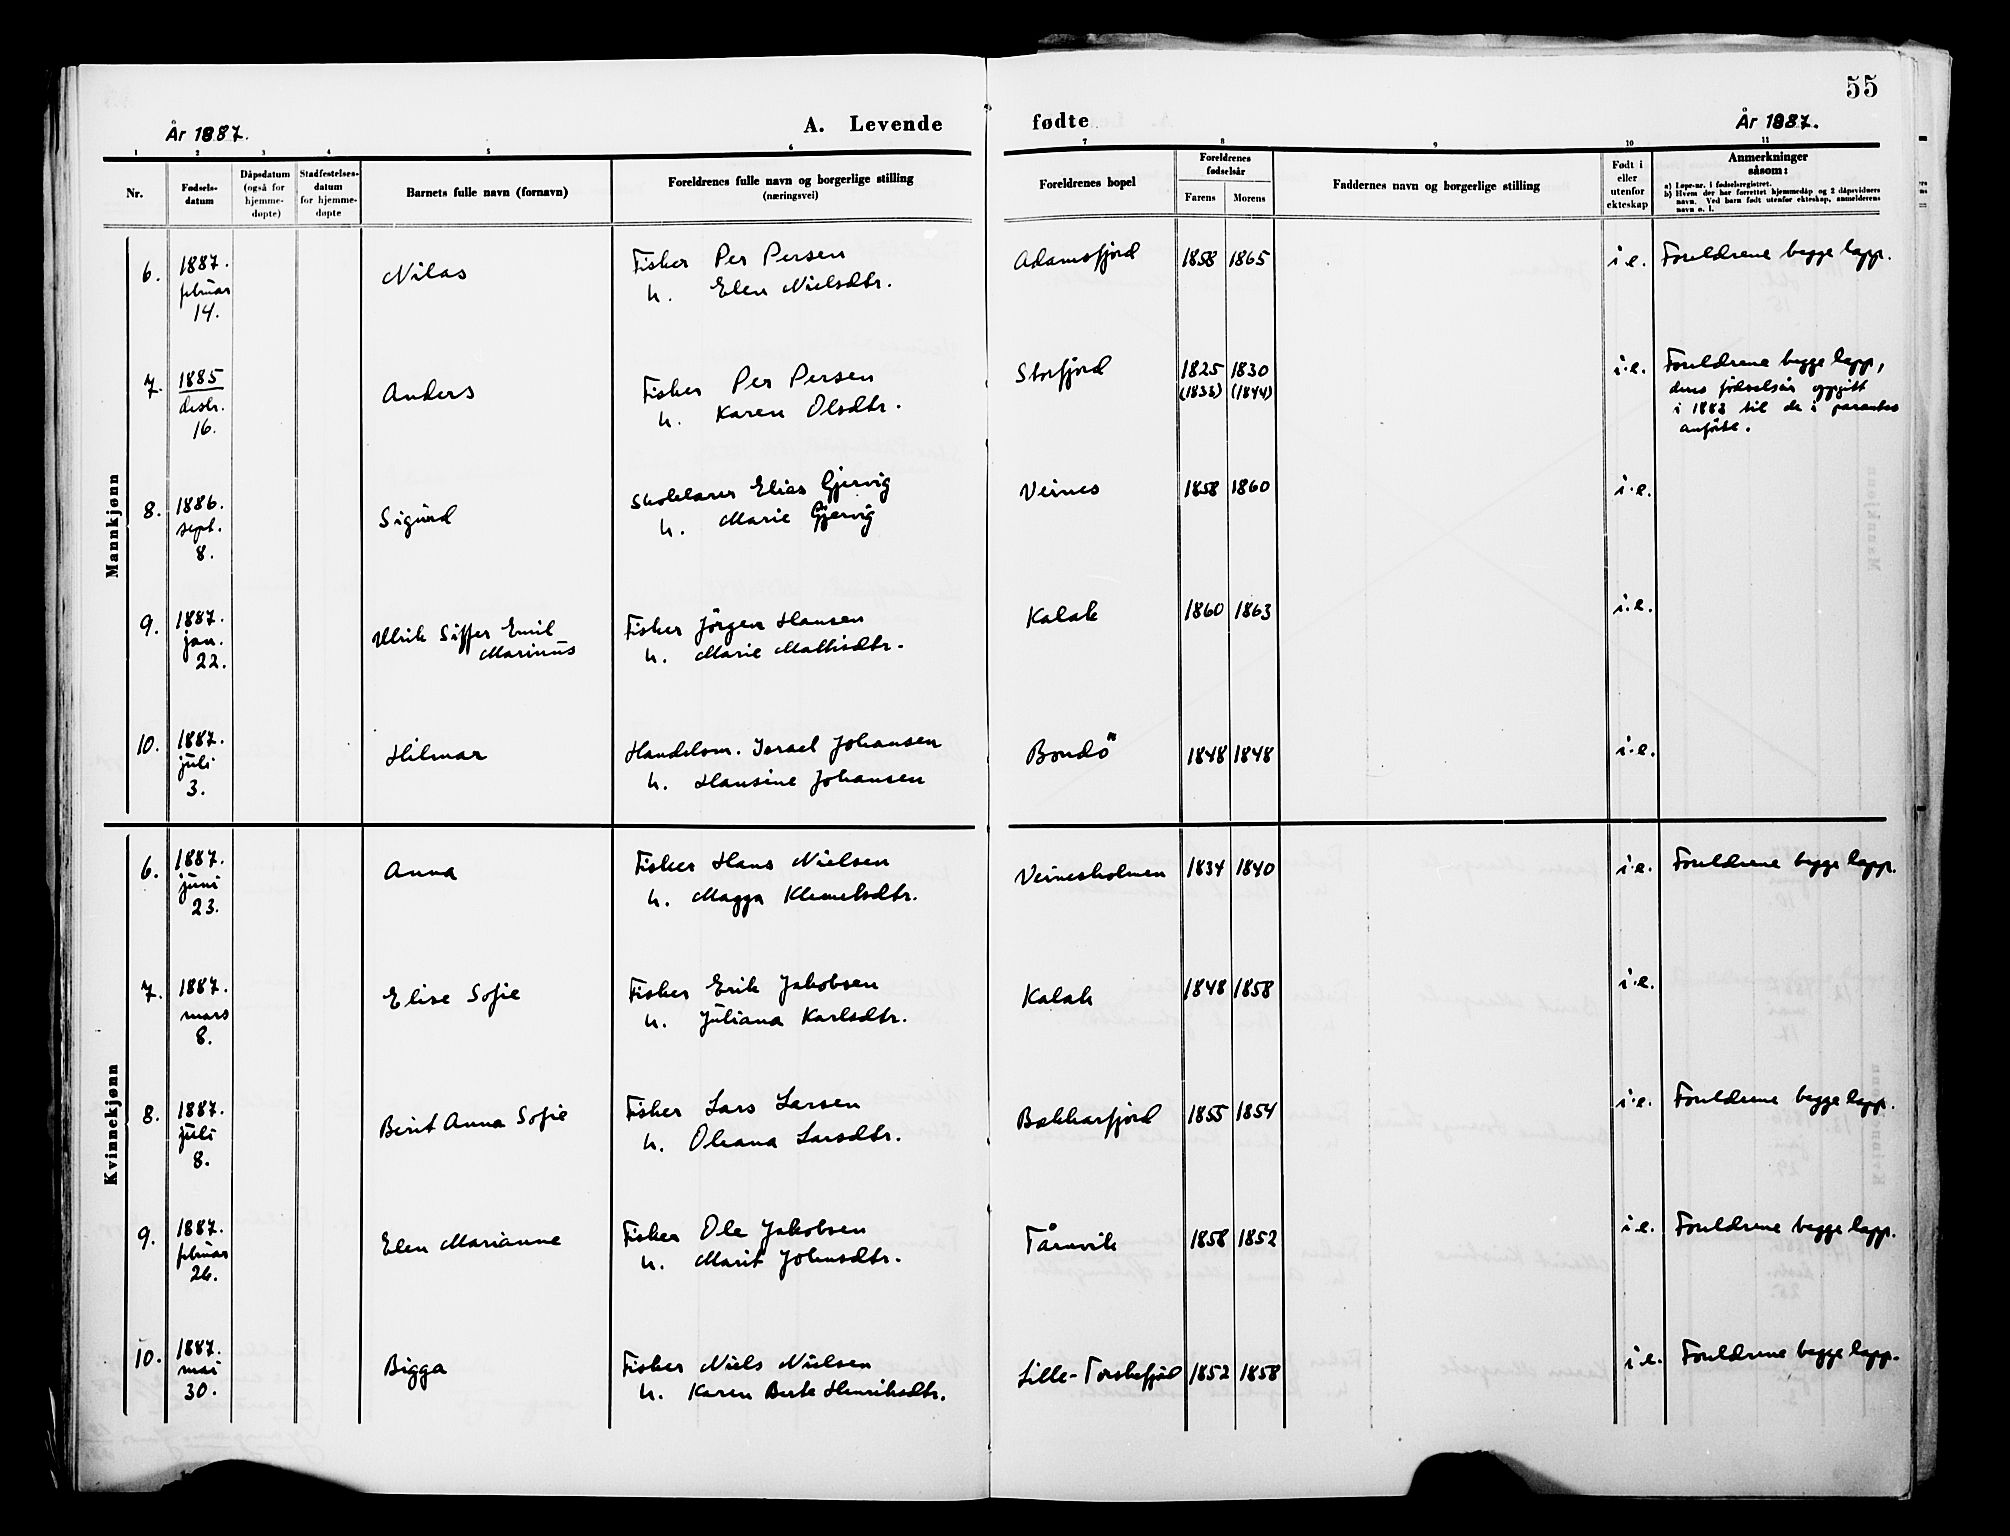 55
År 1887.
A. Levende
fødte
År 1887.
1 2 3 4 5 6 7 8 9 10 11
Nr.
Fødsels-
datum
Dåpsdatum
(også for
hjemme-
døpte)
Stadfestelses-
datum
for hjemme-
døpte
Barnets fulle navn (fornavn)
Foreldrenes fulle navn og borgerlige stilling
(næringsvei)
Foreldrenes bopel
Foreldrenes
fødselsår
Farens Morens
Faddernes navn og borgerlige stilling
Født i
eller
utenfor
ekteskap
Anmerkninger
såsom:
a) Løpe-nr. i fødselsregistret.
b) Hvem der har forrettet hjemmedåp og 2 dåpsvidners
navn. Ved barn født utenfor ekteskap, anmelderens
navn o. l.
Mannkjønn
6. 1887.
februar
14.
Nilas
Fisker Per Persen
h. Elen Nielsdtr.
Adamsfjord 1858 1865 i.e. Foreldrene begge lapp.
7. 1885
desbr.
16.
Anders
Fisker Per Persen
h. Karen Olsdtr.
Storfjord 1825 1830 i.e. Foreldrene begge lapp,
(1844)
deres fødselsår oppgitt
i 1883 til de i parantes
anførte.
8. 1886.
sept.
8.
Sigurd
Skolelærer Elias Gjervig
h. Marie Gjervig
Veines 1858 1860 i.e.
9. 1887.
jan.
22.
Ulrik Siffer Emil
Marinus
Fisker Jörgen Hansen
h. Marie Mathisdtr.
Kalak 1860 1863 i.e.
10. 1887.
juli
3.
Hilmar
Handelsm. Israel Johansen
h. Hansine Johansen
Bondö 1848 1848 i.e.
Kvinnekjønn
6. 1887.
juni
23.
Anna
Fisker Hans Nielsen
h. Magga Klemetsdtr.
Veinesholmen 1834 1840 i.e. Foreldrene begge lapp.
7. 1887.
mars
8.
Elise Sofie
Fisker Erik Jakobsen
h. Juliana Karlsdtr.
Kalak 1848 1858 i.e.
8. 1887.
juli
8.
Berit Anna Sofie
Fisker Lars Larsen
h. Oleana Larsdtr.
Bekkarfjord 1855 1854 i.e. Foreldrene begge lapp.
9. 1887.
februar
26.
Elen Marianne
Fisker Ole Jakobsen
h. Marit Johnsdtr.
Tårnvik 1858 1852 i.e. Foreldrene begge lapp.
10. 1887.
mai
30.
Bigga
Fisker Niels Nielsen
h. Karen Berte Henriksdtr.
Lille-Torskefjord 1852 1858 i.e. Foreldrene begge lapp.